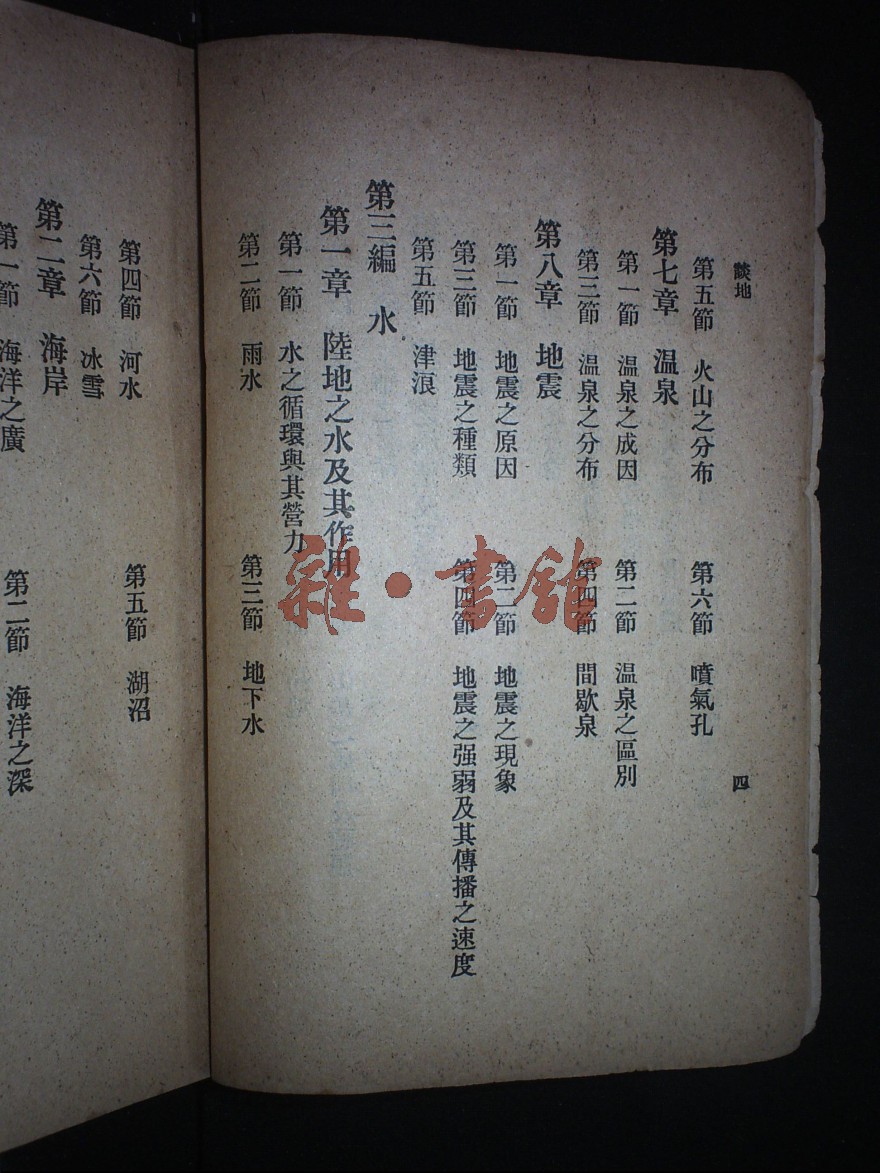 談地
四
第五節 火山之分布 第六節 噴氣孔
第七章 温泉
第一節 温泉之成因 第二節 温泉之區別
第三節 温泉之分布 第四節 間歇泉
第八章 地震
第一節 地震之原因 第二節 地震之現象
第三節 地震之種類 第四節 地震之强弱及其傳播之速度
第五節 津浪
第三編 水
第一章 陸地之水及其作用
第一節 水之循環與其營力
第二節 雨水 第三節 地下水
第四節 河水 第五節 湖沼
第六節 冰雪
第二章 海岸
第一節 海洋之廣 第二節 海洋之深
雜·書館